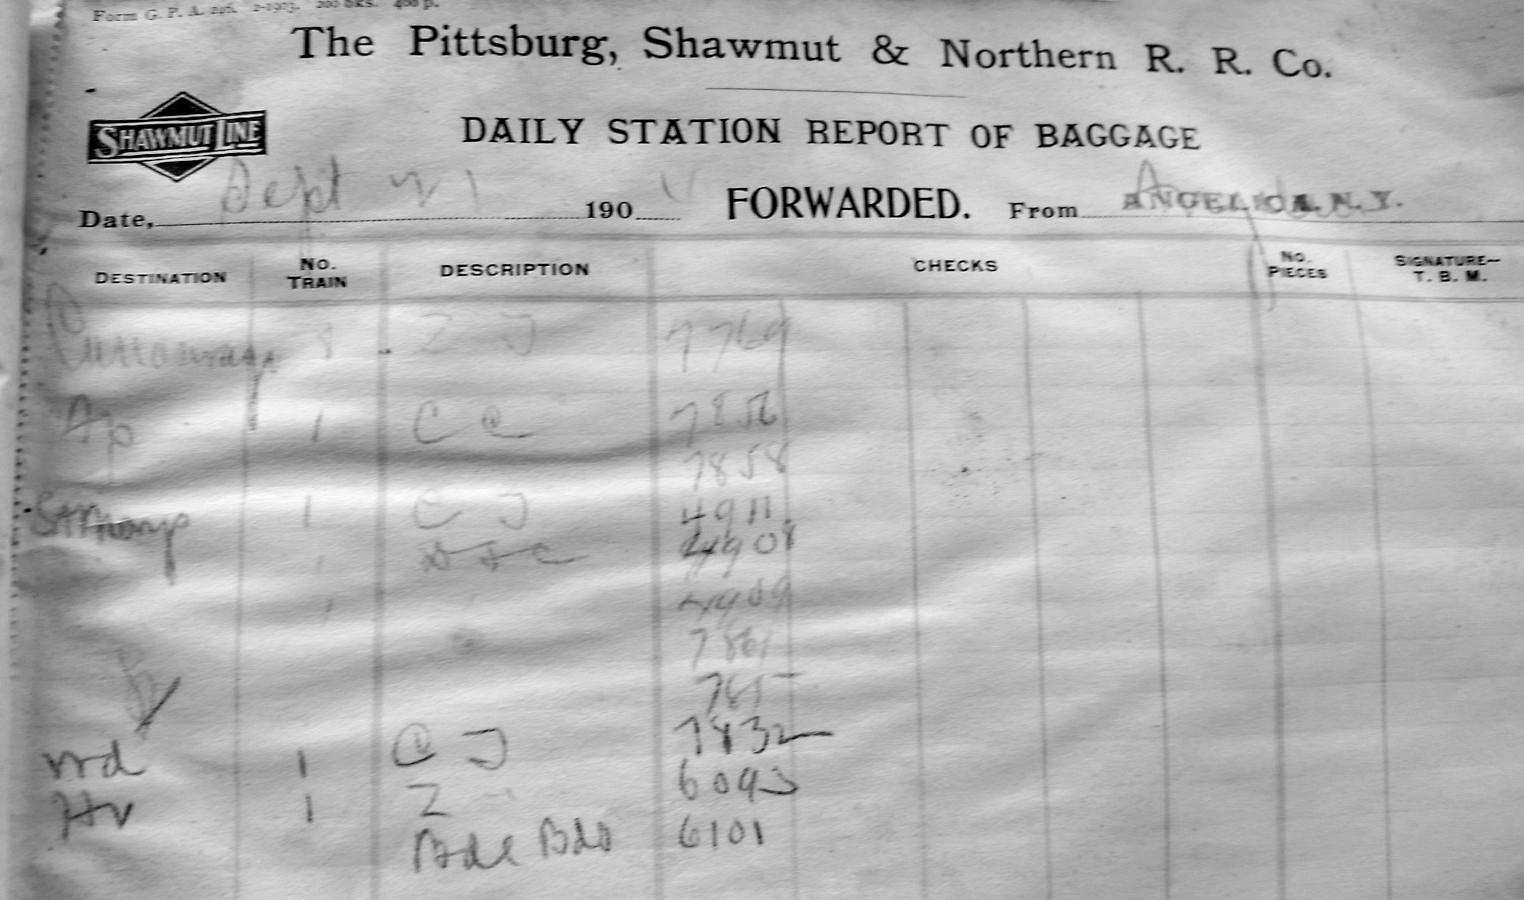 Form G. P. A. 246. 2-1903. 200 bks. 400 p.
The Pittsburg, Shawmut & Northern R. R. Co.
SHAWMUT LINE
DAILY STATION REPORT OF BAGGAGE
Date, Sept 21 190 FORWARDED. From ANGELICA, N.Y.
DESTINATION NO. TRAIN DESCRIPTION CHECKS NO. PIECES SIGNATURE— T. B. M.
8 Z J 7769
Ap 1 C C 7856
7858
1 C J 4911
4908
4909
7861
1 C J 7832
Hv 1 Z 6093
6101